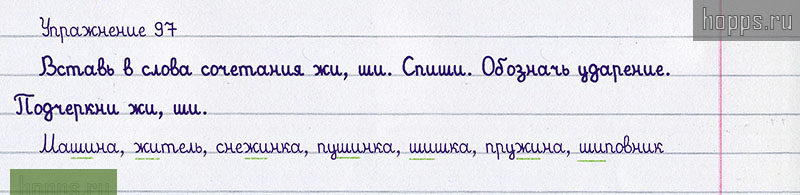 Упражнение 97
hopps.ru
Вставь в слова сочетания жи, ши. Спиши. Обозначь ударение.
Подчеркни жи, ши.
Машина, житель, снежинка, пушинка, шишка, пружина, шиповник
hopps.ru